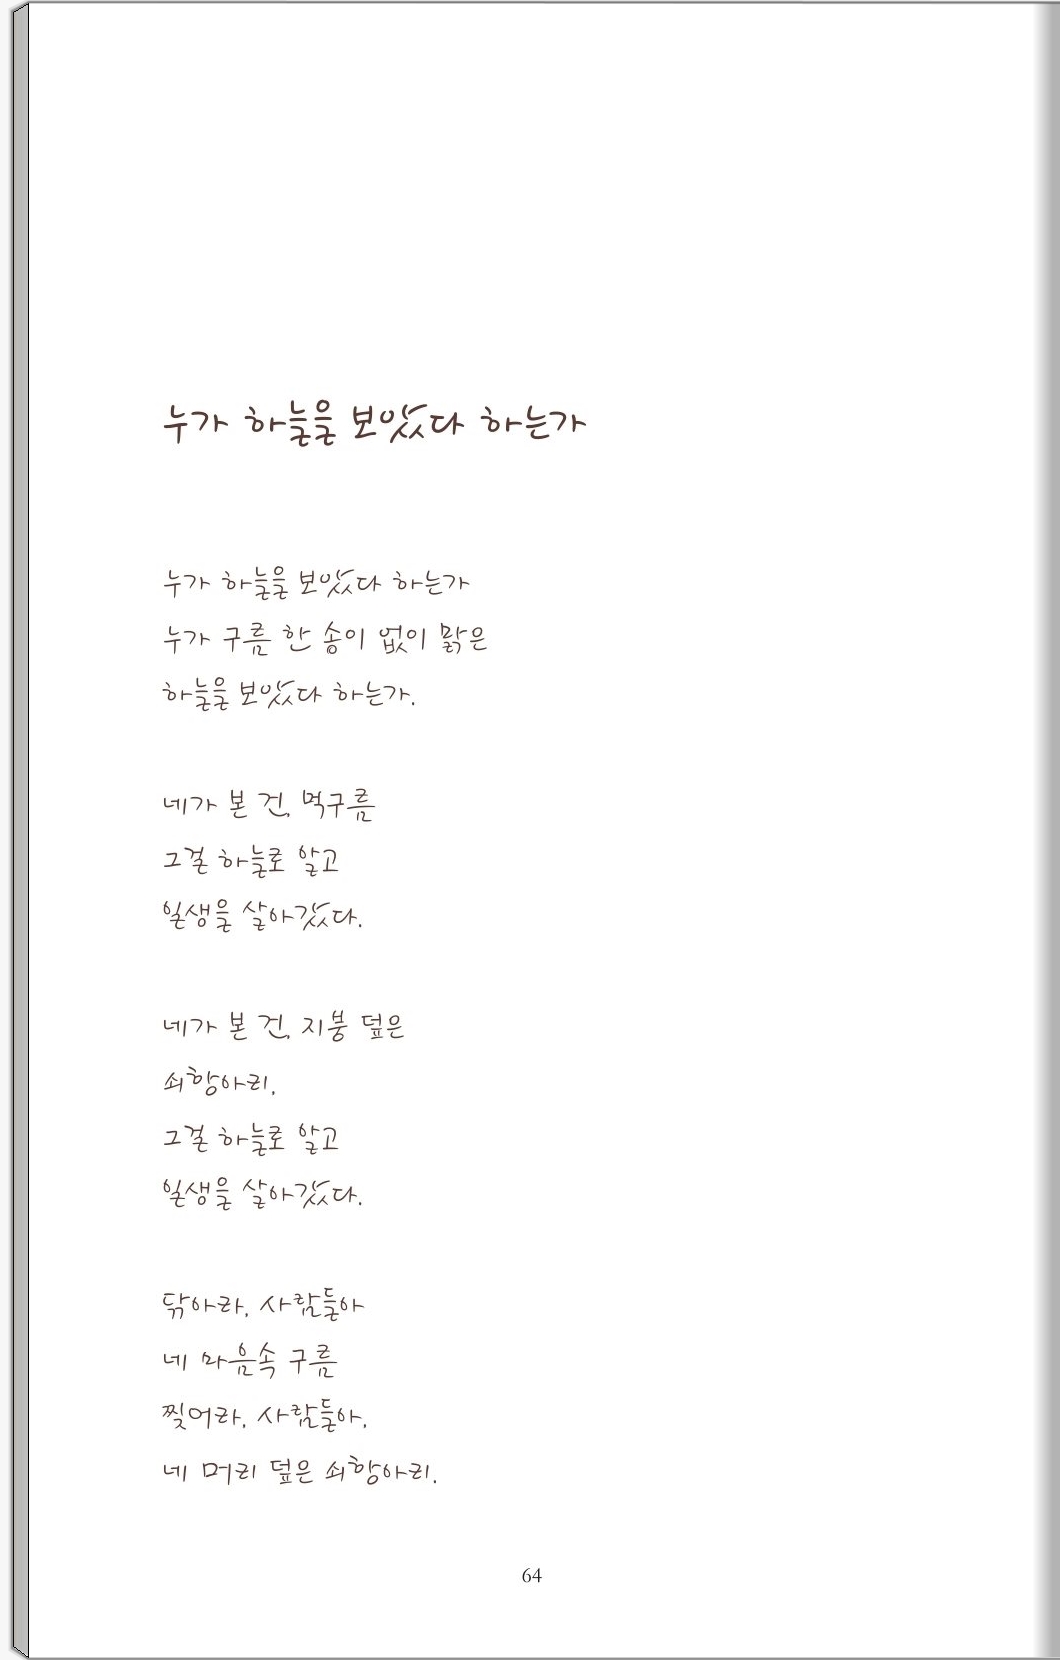 누가 하늘을 보았다 하는가
누가 하늘을 보았다 하는가
누가 구름 한 송이 없이 맑은
하늘을 보았다 하는가.
네가 본 건, 먹구름
그걸 하늘로 알고
일생을 살아갔다.
네가 본 건, 지붕 덮은
쇠항아리,
그걸 하늘로 알고
일생을 살아갔다.
닦아라, 사람들아
네 마음속 구름
찢어라, 사람들아,
네 머리 덮은 쇠항아리.
64